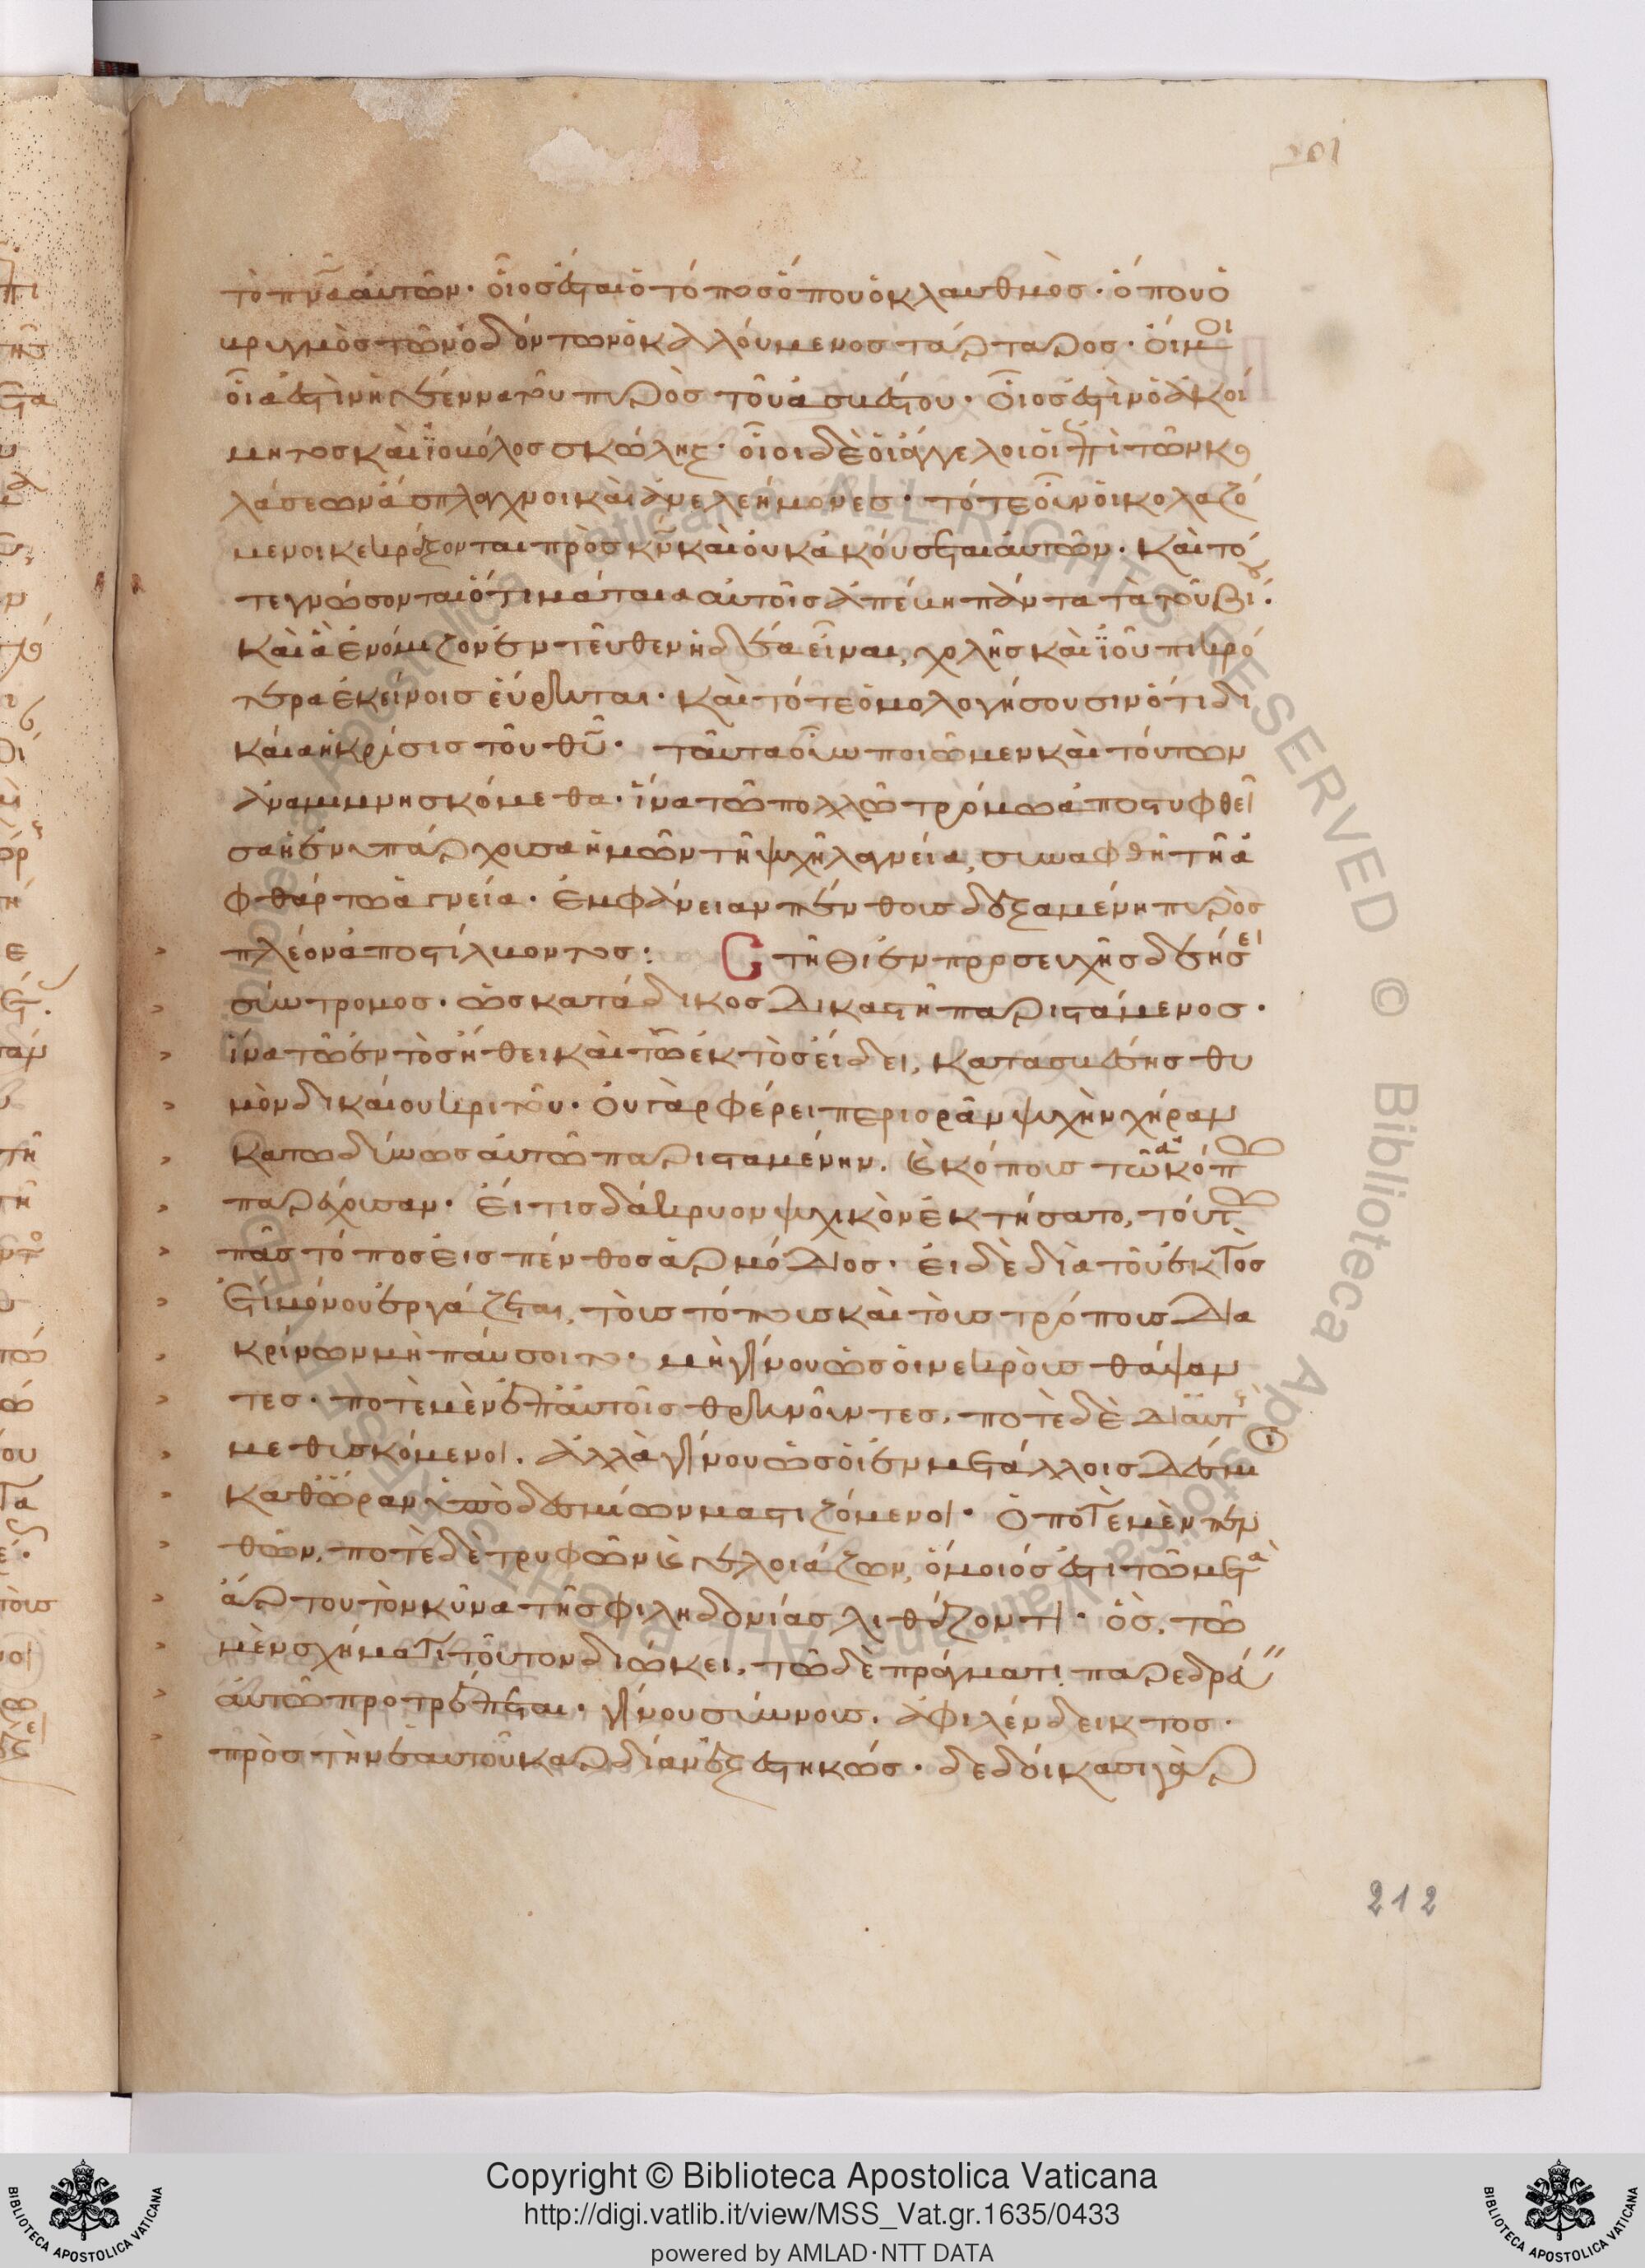 201
τὸ πνᾶ αὐτῶν· οἷος ἔσται ὁ τόπος ὅπου ὁ κλαυθμὸς· ὅπου ὁ
βριγμὸς τῶν ὀδόντων ὁ καλλούμενος τάρταρος· οἴμοι
οἵα ἐστὶν ἡ γέεννα τοῦ πυρὸς τοῦ ἀσβέστου· οἷος ἐστὶν ὁ ἀκοί
μητος καὶ ἰοβόλος σκώλης· οἷοι δὲ οἱ ἄγγελοι οἱ ἐπὶ τῶν κο
λάσεων ἄσπλαχνοι καὶ ἀνελεήμονες· τότε οὖν οἱ κολαζό
μενοι κεκράξονται πρὸς κν̄ καὶ οὐκ ἀκούσεται αὐτῶν· καὶ τό
τε γνώσονται ὅτι μάταια αὐτοῖς ἀπέβη πάντα τὰ τοῦ βίου·
καὶ ἃ ἐνόμιζον ἐντεῦθεν ἡδέα εἶναι, χολῆς καὶ ἰοῦ πικρό
τερα ἐκείνοις εὕρηται· καὶ τότε ὁμολογήσουσιν ὅτι δι
καία ἡ κρίσις τοῦ θῦ· ταῦτα οὖν ποιῶμεν καὶ τούτων
ἀναμιμνησκόμεθα· ἵνα τῷ πολλῷ τρόμῳ ἀποστυφθεῖ
σα ἡ ἐνυπάρχουσα ἡμῶν τῇ ψυχῇ λαγνεία, συναφθῇ τῇ ἀ
φθάρτῳ ἁγνεία· ἐμφάνειαν πένθους δεξαμένη πυρὸς
πλέον ἀποστίλβοντος: Στῆθι ἐν προσευχῇ σῆς δεήσει
σύντρομος· ὡς κατάδικος δικαστῇ παριστάμενος·
ἵνα τῷ ἐντὸς ἤθει καὶ τῷ ἐκτὸς εἴδει, κατασβέσῃς θυ
μὸν δικαίου κριτοῦ· οὐ γὰρ φέρει περιορᾶν ψυχὴν χήραν
κατωδύνως αὐτῷ παρισταμένην. καὶ κόπους τῷ ἀκόπῳ
παρέχουσαν· εἴ τις δάκρυον ψυχικὸν ἐκτήσατο, τούτῳ
πᾶς τόπος εἰς πένθος ἁρμόδιος· εἰ δὲ διὰ τοῦ ἐκτὸς
ἔτι μόνου ἐργάζεται, τοὺς τόπους καὶ τοὺς τρόπους δια
κρίνων μὴ παύσοιτο· μὴ γίνου ὡς οἱ νεκροὺς θάψαν
τες· ποτὲ μὲν ἐπ' αὐτοῖς θρηνοῦντες, ποτὲ δὲ δι' αὐτοὺς
μεθυσκόμενοι. ἀλλὰ γίνου ὡς οἱ ἐν μετάλλοις δέσμιοι
καθ' ὥραν ὑπὸ δημίων μαστιζόμενοι· ὁ ποτὲ μὲν πεν
θῶν, ποτὲ δὲ τρυφῶν καὶ γελοιάζων, ὅμοιός ἐστι τῷ μετὰ
ἄρτου τὸν κῦνα τῆς φιληδονίας λιθάζοντι· ὃς, τῷ
μὲν σχήματι τοῦτον διώκει, τῷ δὲ πράγματι παρεδρά
αὐτῷ προτρέπεται· γίνου σύννους. ἀφιλένδεικτος·
πρὸς τὴν ἑαυτοῦ καρδίαν ἐξεστηκώς· δεδοίκασι γὰρ
212
Copyright © Biblioteca Apostolica Vaticana
http://digi.vatlib.it/view/MSS_Vat.gr.1635/0433
powered by AMLAD·NTT DATA